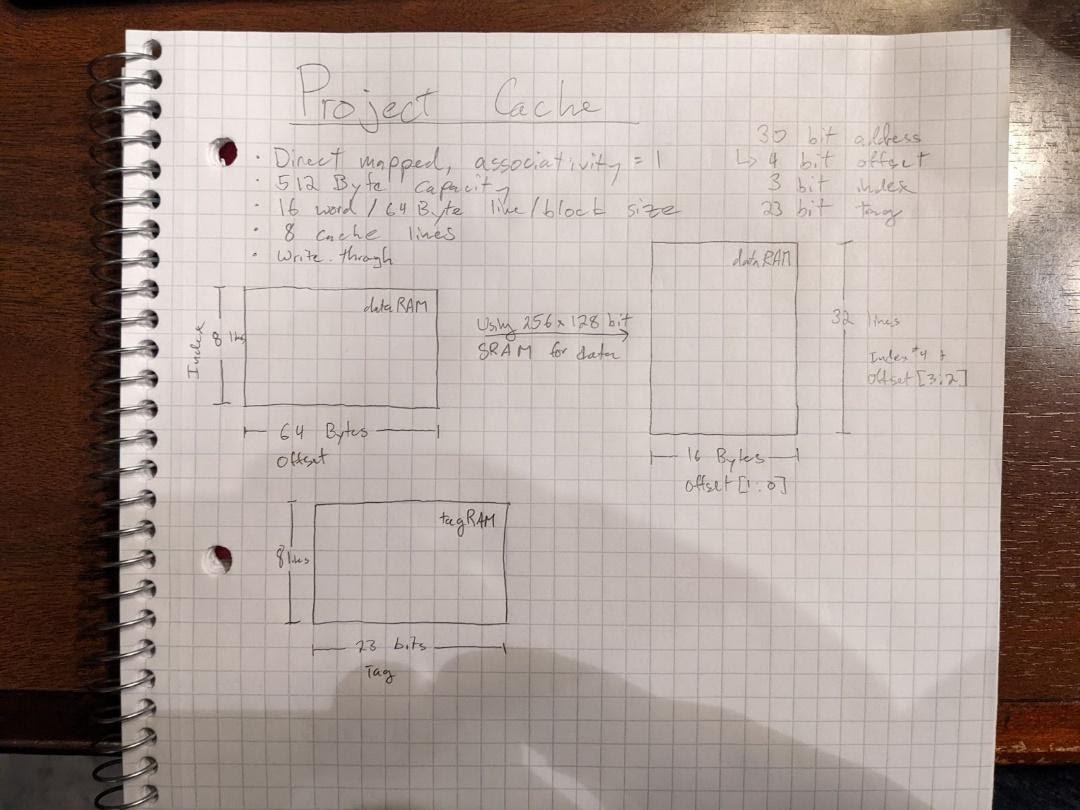 Project Cache
30 bit address
↳ 4 bit offset
3 bit index
23 bit tag
· Direct mapped, associativity = 1
· 512 Byte capacity
· 16 word / 64 Byte line/block size
· 8 cache lines
· Write-through
dataRAM
Index
8 lines
64 Bytes
Offset
Using 256 x 128 bit
SRAM for data
dataRAM
32 lines
Index*4 +
Offset [3:2]
16 Bytes
Offset [1:0]
tagRAM
8 lines
23 bits
Tag